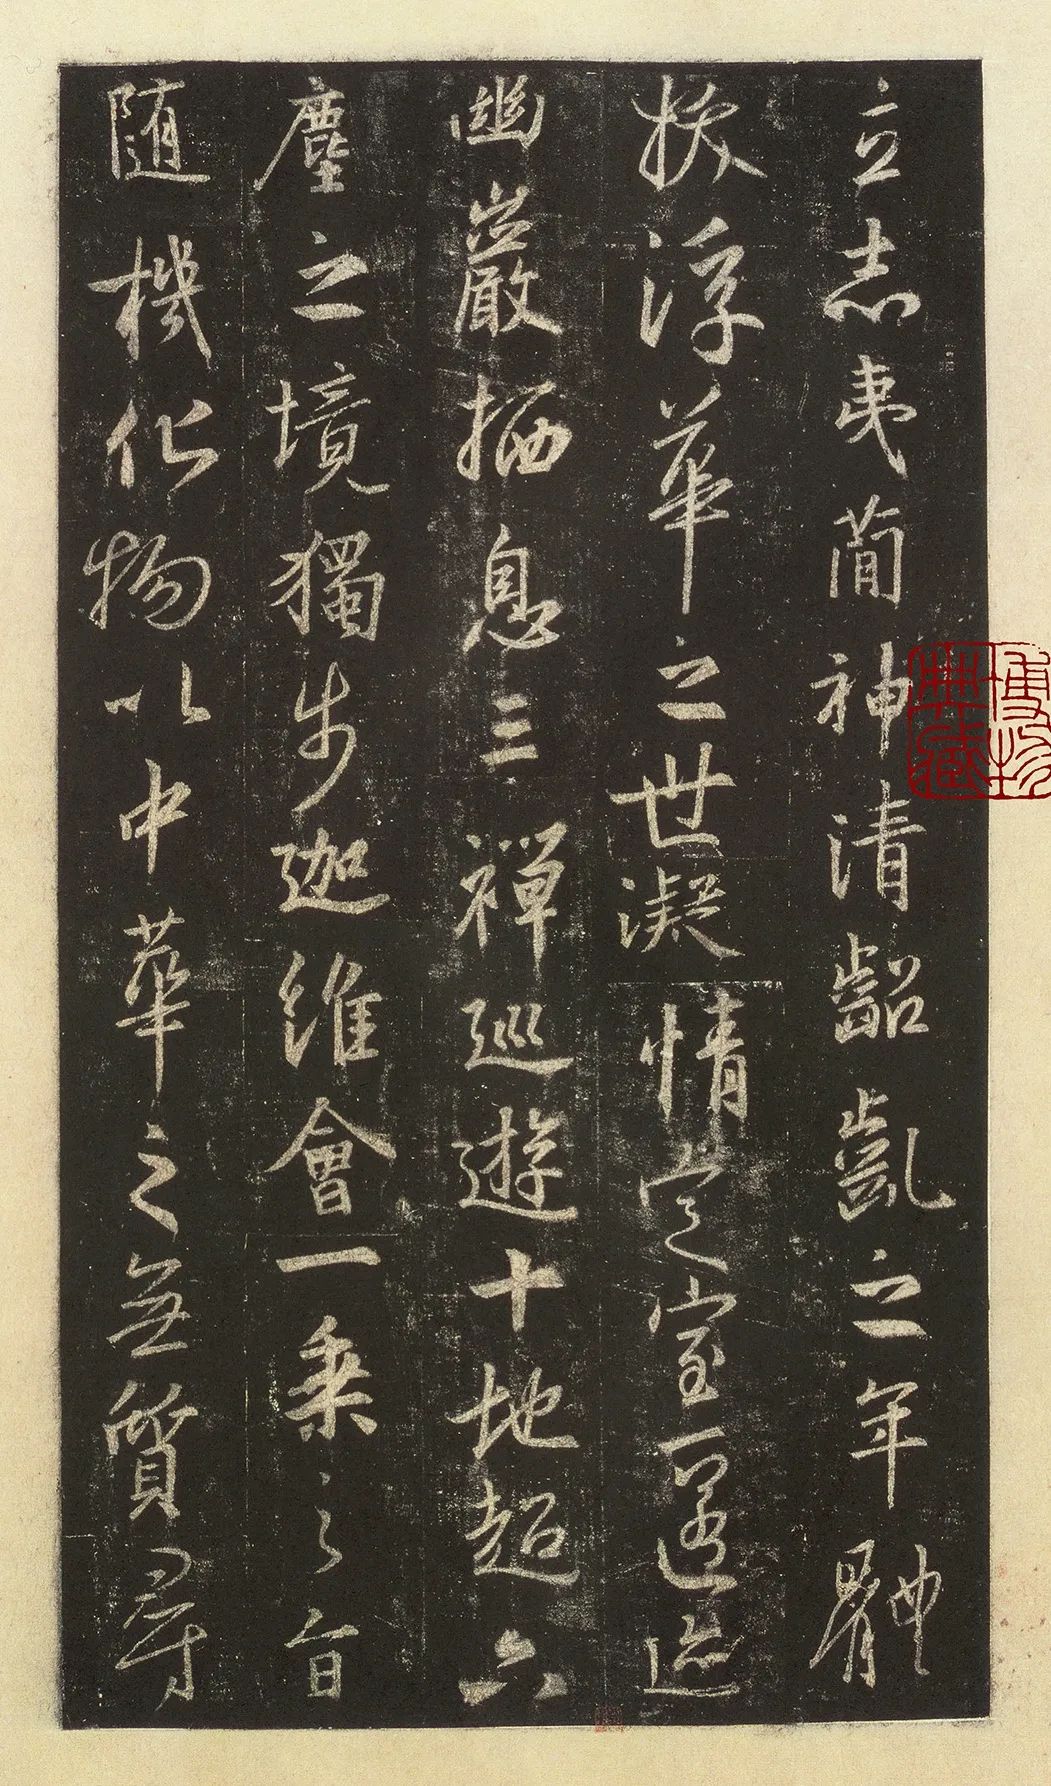 立志夷蕳神清齠齔之年體
拔浮華之世凝情定室匿迹
幽巖栖息三禪巡遊十地超六
塵之境獨步迦維會一乘之旨
随機化物以中華之無質尋